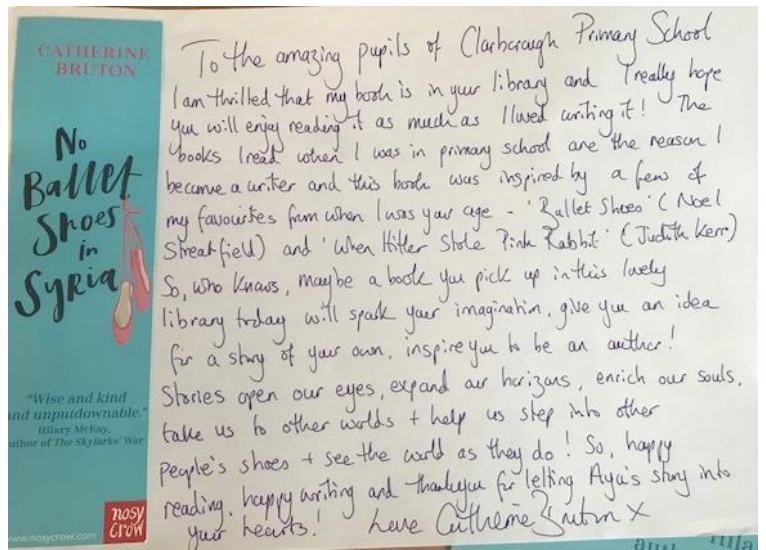 CATHERINE
BRUTON
No
Ballet
Shoes
in
Syria
"Wise and kind
and unputdownable."
Hilary McKay,
author of The Skylarks' War
nosy
crow
www.nosycrow.com
To the amazing pupils of Clarborough Primary School
I am thrilled that my book is in your library and I really hope
you will enjoy reading it as much as I loved writing it! The
books I read when I was in primary school are the reason I
became a writer and this book was inspired by a few of
my favourites from when I was your age - 'Ballet Shoes' (Noel
Streatfield) and 'When Hitler Stole Pink Rabbit' (Judith Kerr)
So, who knows, maybe a book you pick up in this lovely
library today will spark your imagination, give you an idea
for a story of your own, inspire you to be an author!
Stories open our eyes, expand our horizons, enrich our souls,
take us to other worlds + help us step into other
people's shoes + see the world as they do! So, happy
reading, happy writing and thankyou for letting Aya's story into
your hearts! Love Catherine Bruton X